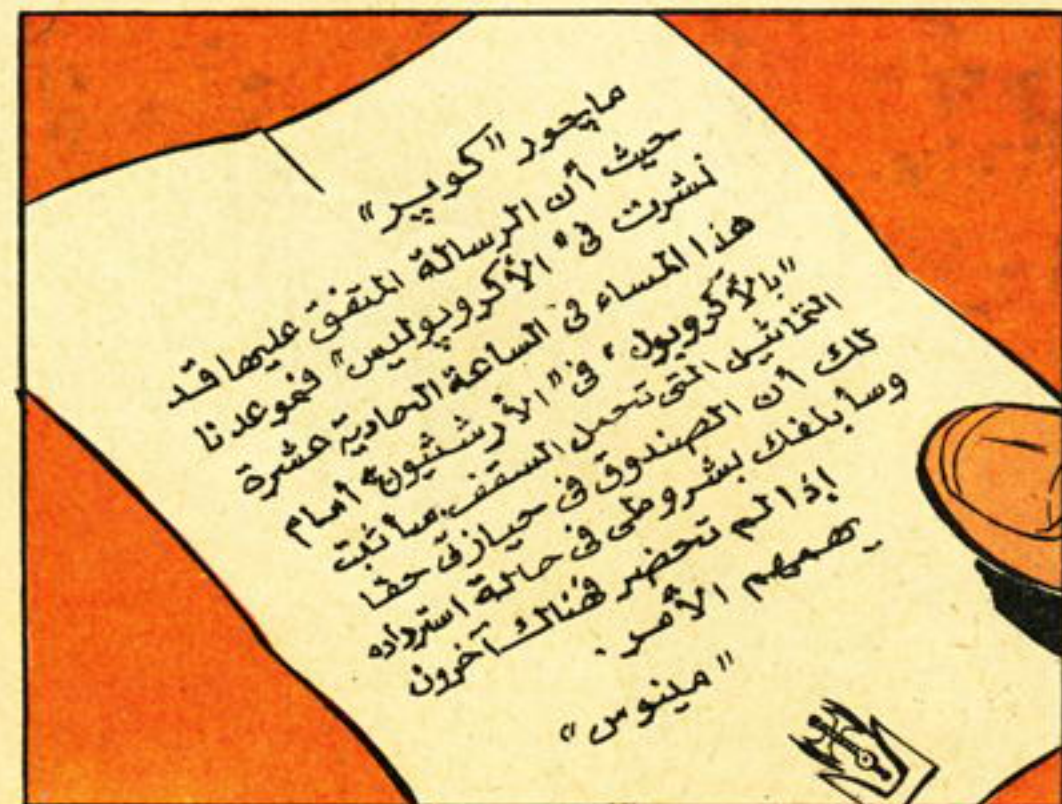 مايچور "كوپر"
حيث أن الرسالة المتفق عليها قد
نشرت فى "الأكروپوليس" فموعدنا
هذا المساء فى الساعة الحادية عشرة
"بالأكروپول" فى "الأرشثيون" أمام
التماثيل التى تحمل السقف. سأثبت
لك أن الصندوق فى حيازتى حقا
وسأبلغك بشروطى فى حالة استرداده
إذا لم تحضر فهناك آخرون
يهمهم الأمر.
"مينوس"